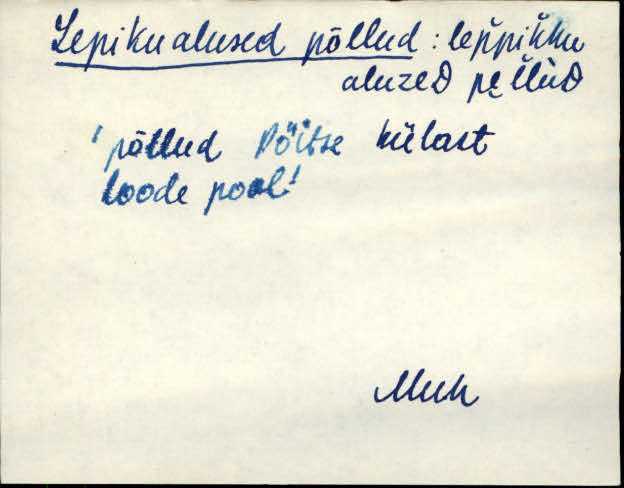 Lepikualused põllud : lep̆pik̆ku
aluzeD pe̮l̆lùD
'põllud Põitse külast
loode pool'
Muh